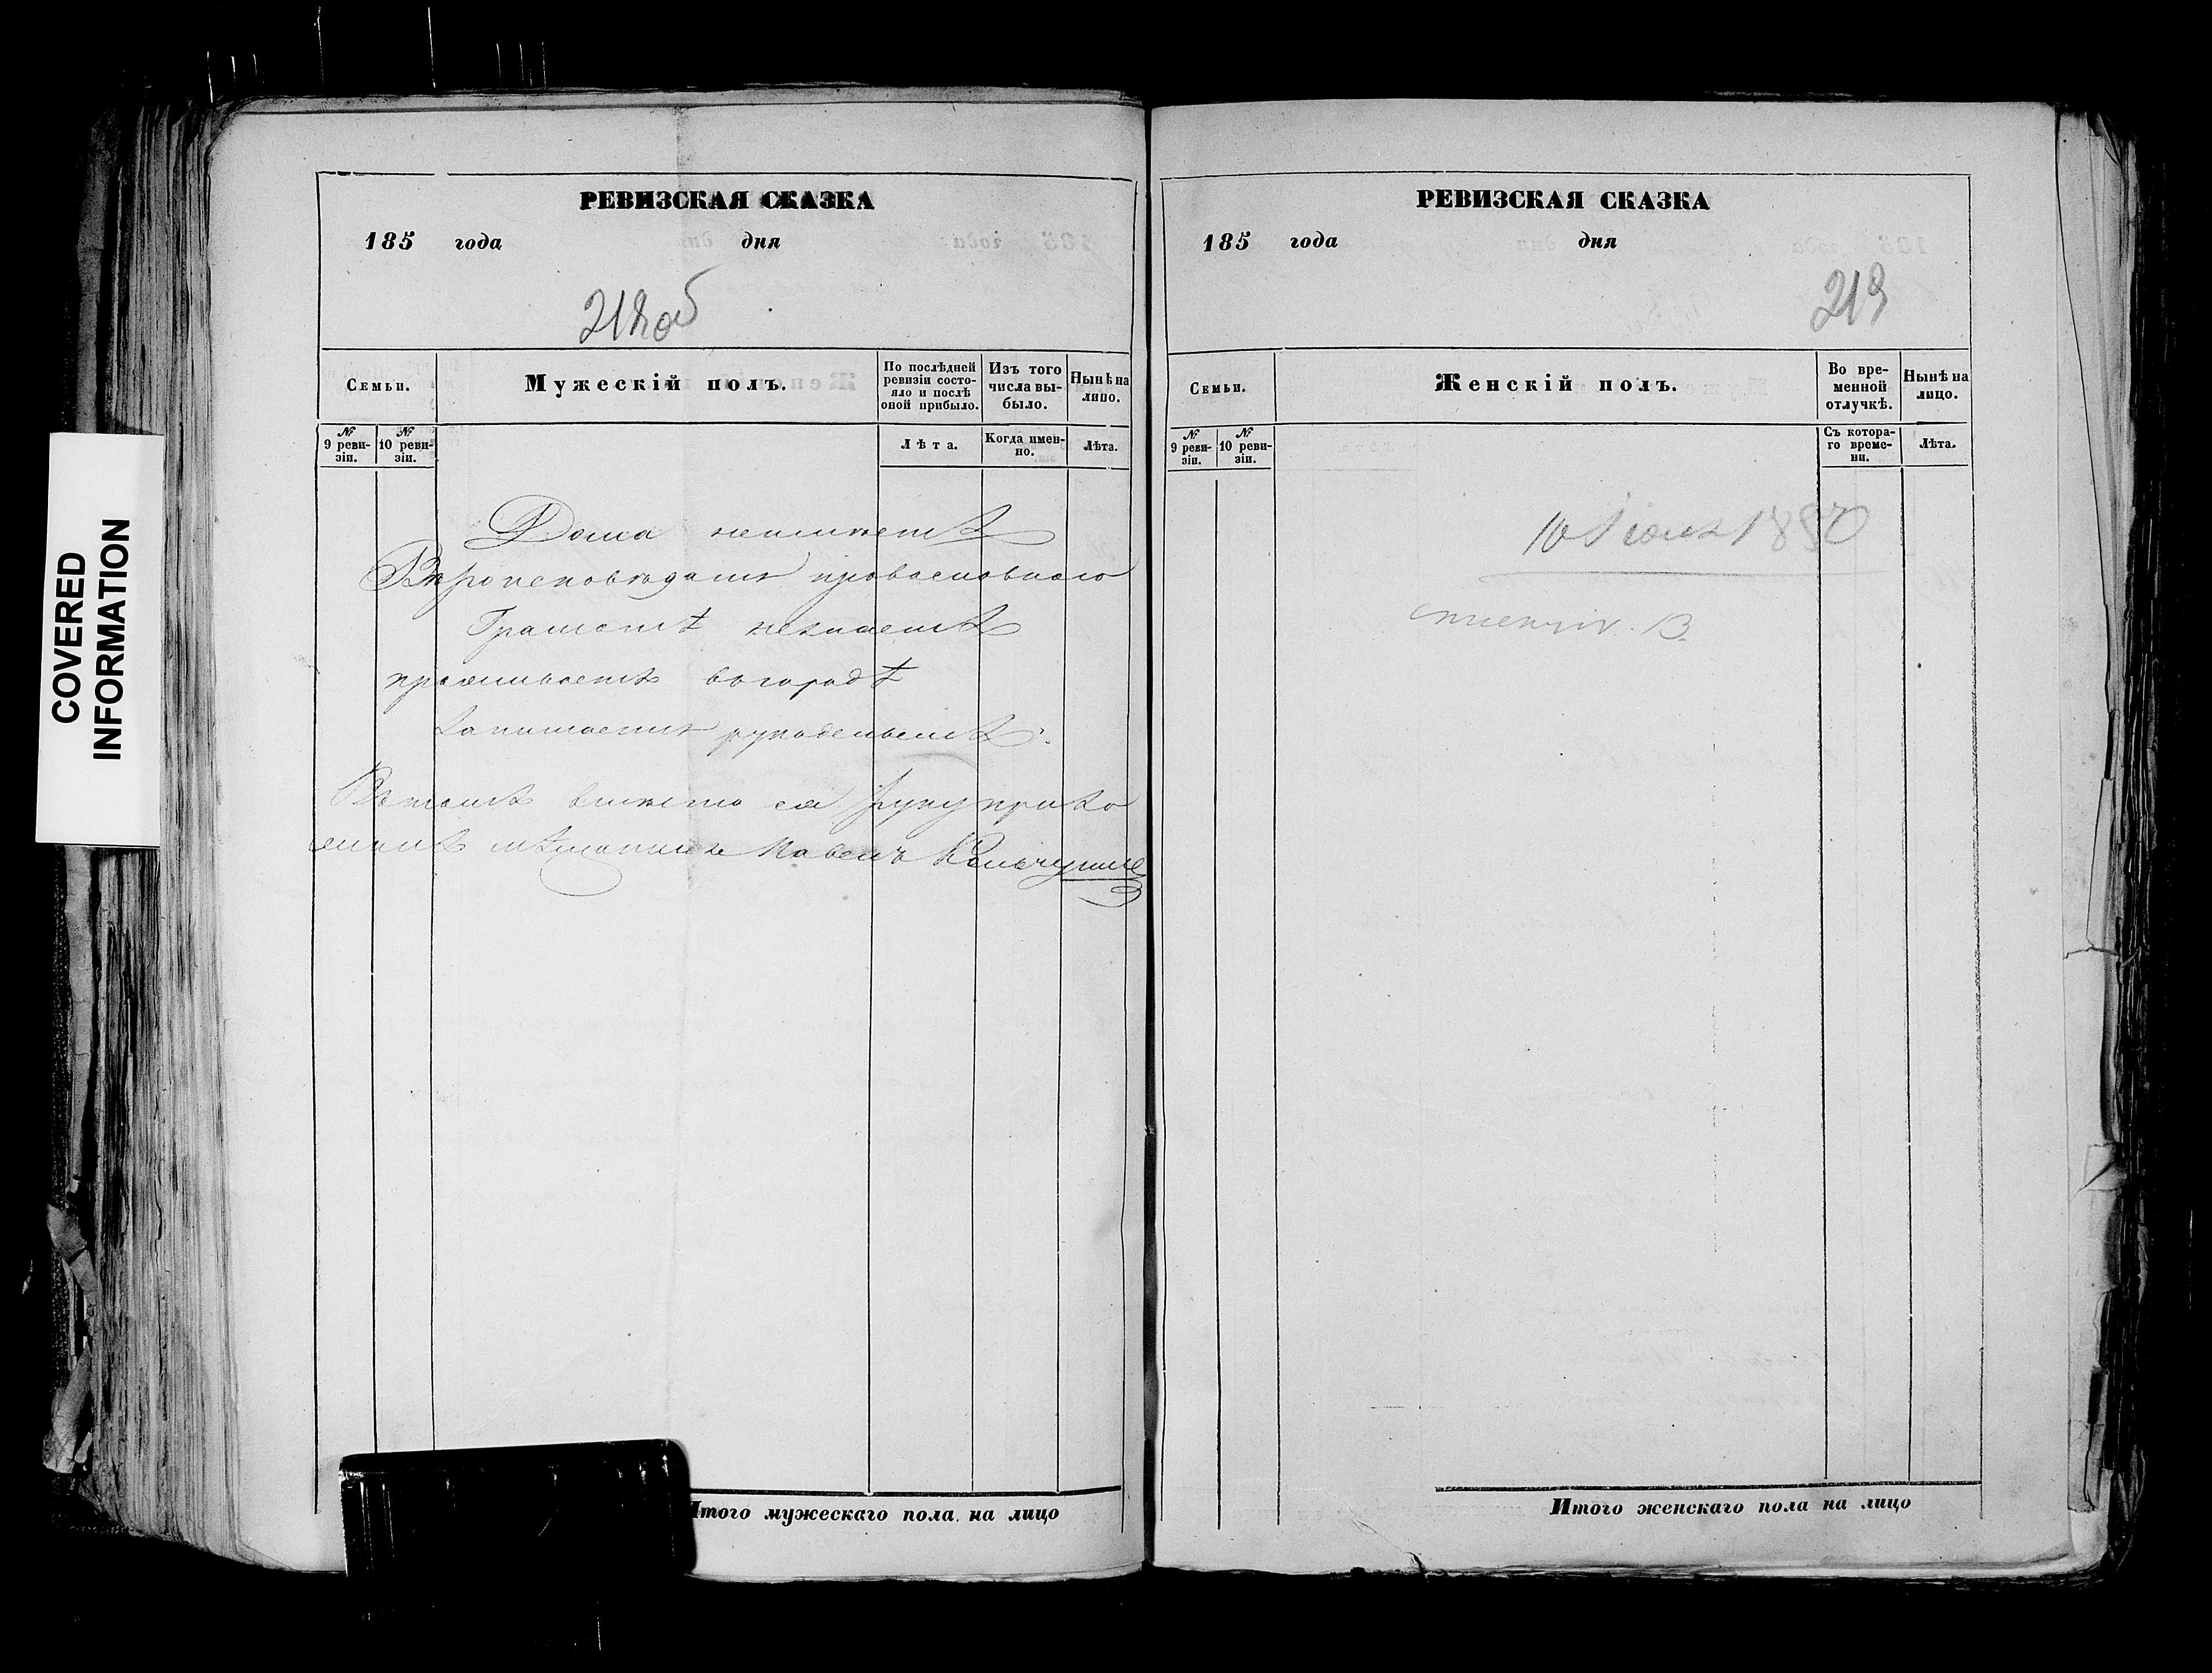 COVERED
INFORMATION
РЕВИЗСКАЯ СКАЗКА
185 года дня
218об
Семьи.
Мужескій полъ.
По послѣдней
ревизіи состо-
яло и послѣ
оной прибыло.
Изъ того
числа вы-
было.
Нынѣ на
лицо.
№
9 реви-
зіи.
№
10 реви-
зіи.
Лѣта.
Когда имен-
но.
Лѣта.
Дома неимеетъ
православного
Грамотѣ незнаетъ
проживаетъ вгородѣ
Занимаетъ рукодельемъ.
Втомъ вместо ея руку прило
жилъ мѣщанинъ Павелъ
Итого мужескаго пола на лицо
РЕВИЗСКАЯ СКАЗКА
185 года дня
219
Семьи.
Женскій полъ.
Во вре-
менной
отлучкѣ.
Нынѣ на
лицо.
№
9 реви-
зіи.
№
10 реви-
зіи.
Съ котора-
го време-
ни.
Лѣта.
10 1850
Итого женскаго пола на лицо